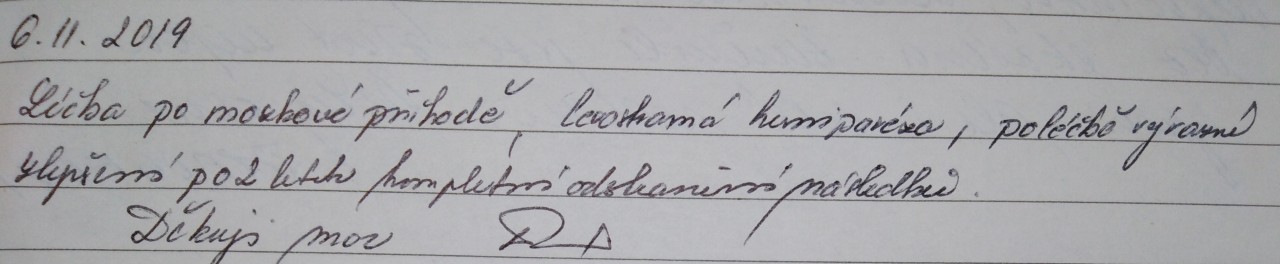 6.11.2019
Léčba po mozkové příhodě, levostraná hemiparéza, po léčbě výrazné
zlepšení po 2 letech kompletní odstranění následků.
Děkuji moc